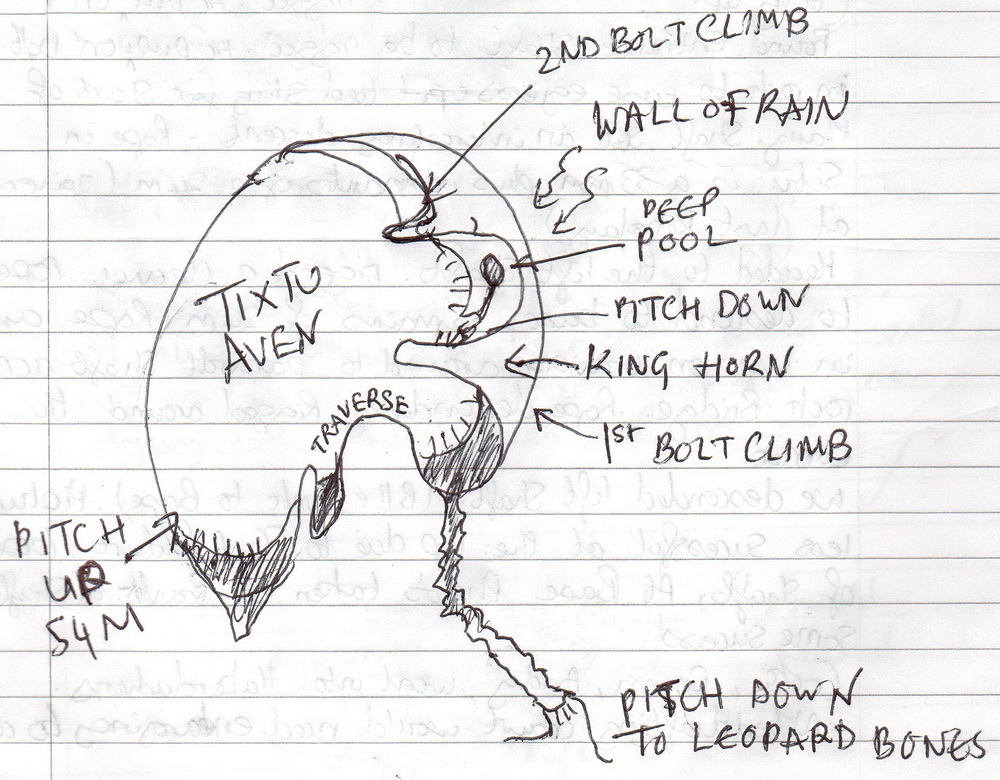 2ND BOLT CLIMB
WALL OF RAIN
DEEP
POOL
TIXTU
AVEN
PITCH DOWN
KING HORN
TRAVERSE
1st BOLT CLIMB
PITCH
UP
54M
PITCH DOWN
TO LEOPARD BONES